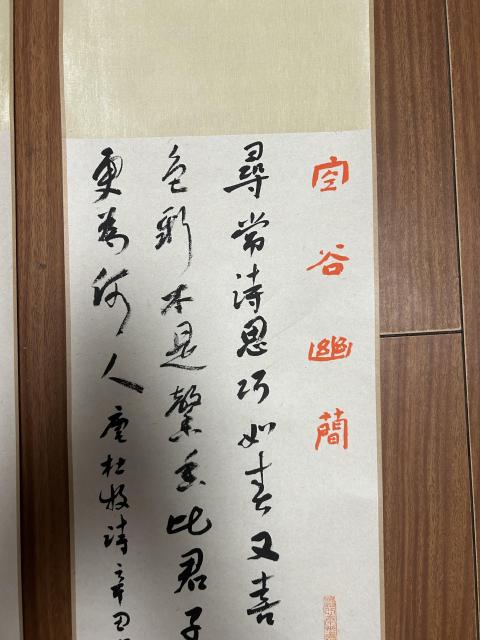 空谷幽蘭
尋常詩思巧如春又喜
草新本是馨香比君子
更為何人唐杜牧詩辛丑